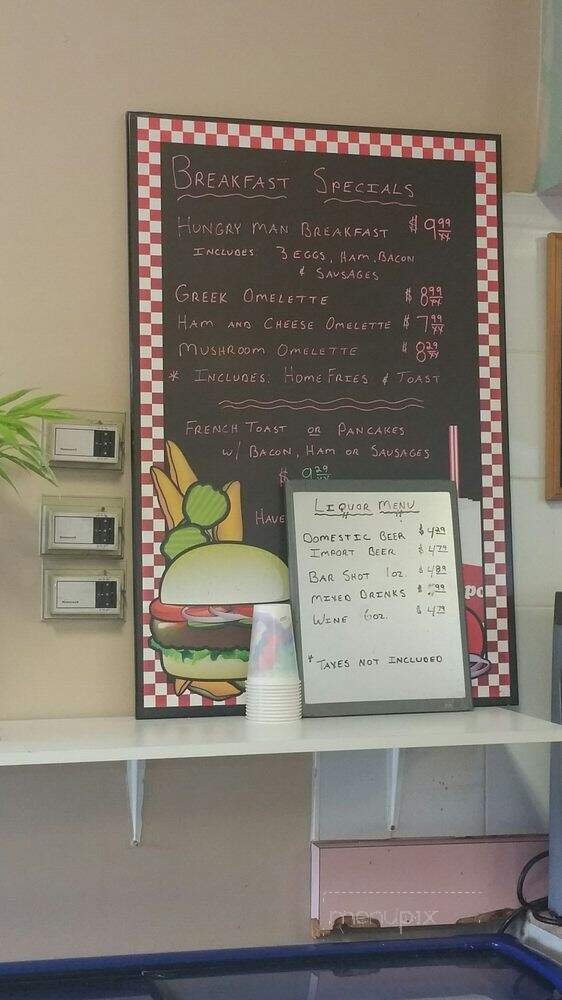 BREAKFAST SPECIALS
HUNGRY MAN BREAKFAST $9.99
INCLUDES: 3 EGGS, HAM, BACON
& SAUSAGES
GREEK OMELETTE $8.99
HAM AND CHEESE OMELETTE $7.99
MUSHROOM OMELETTE $8.29
* INCLUDES: HOME FRIES & TOAST
FRENCH TOAST OR PANCAKES
W/ BACON, HAM OR SAUSAGES
$9.29
HAVE
LIQUOR MENU
DOMESTIC BEER
IMPORT BEER $4.79
BAR SHOT 1OZ. $4.89
MIXED DRINKS
WINE 6OZ. $4.79
* TAXES NOT INCLUDED
menupix